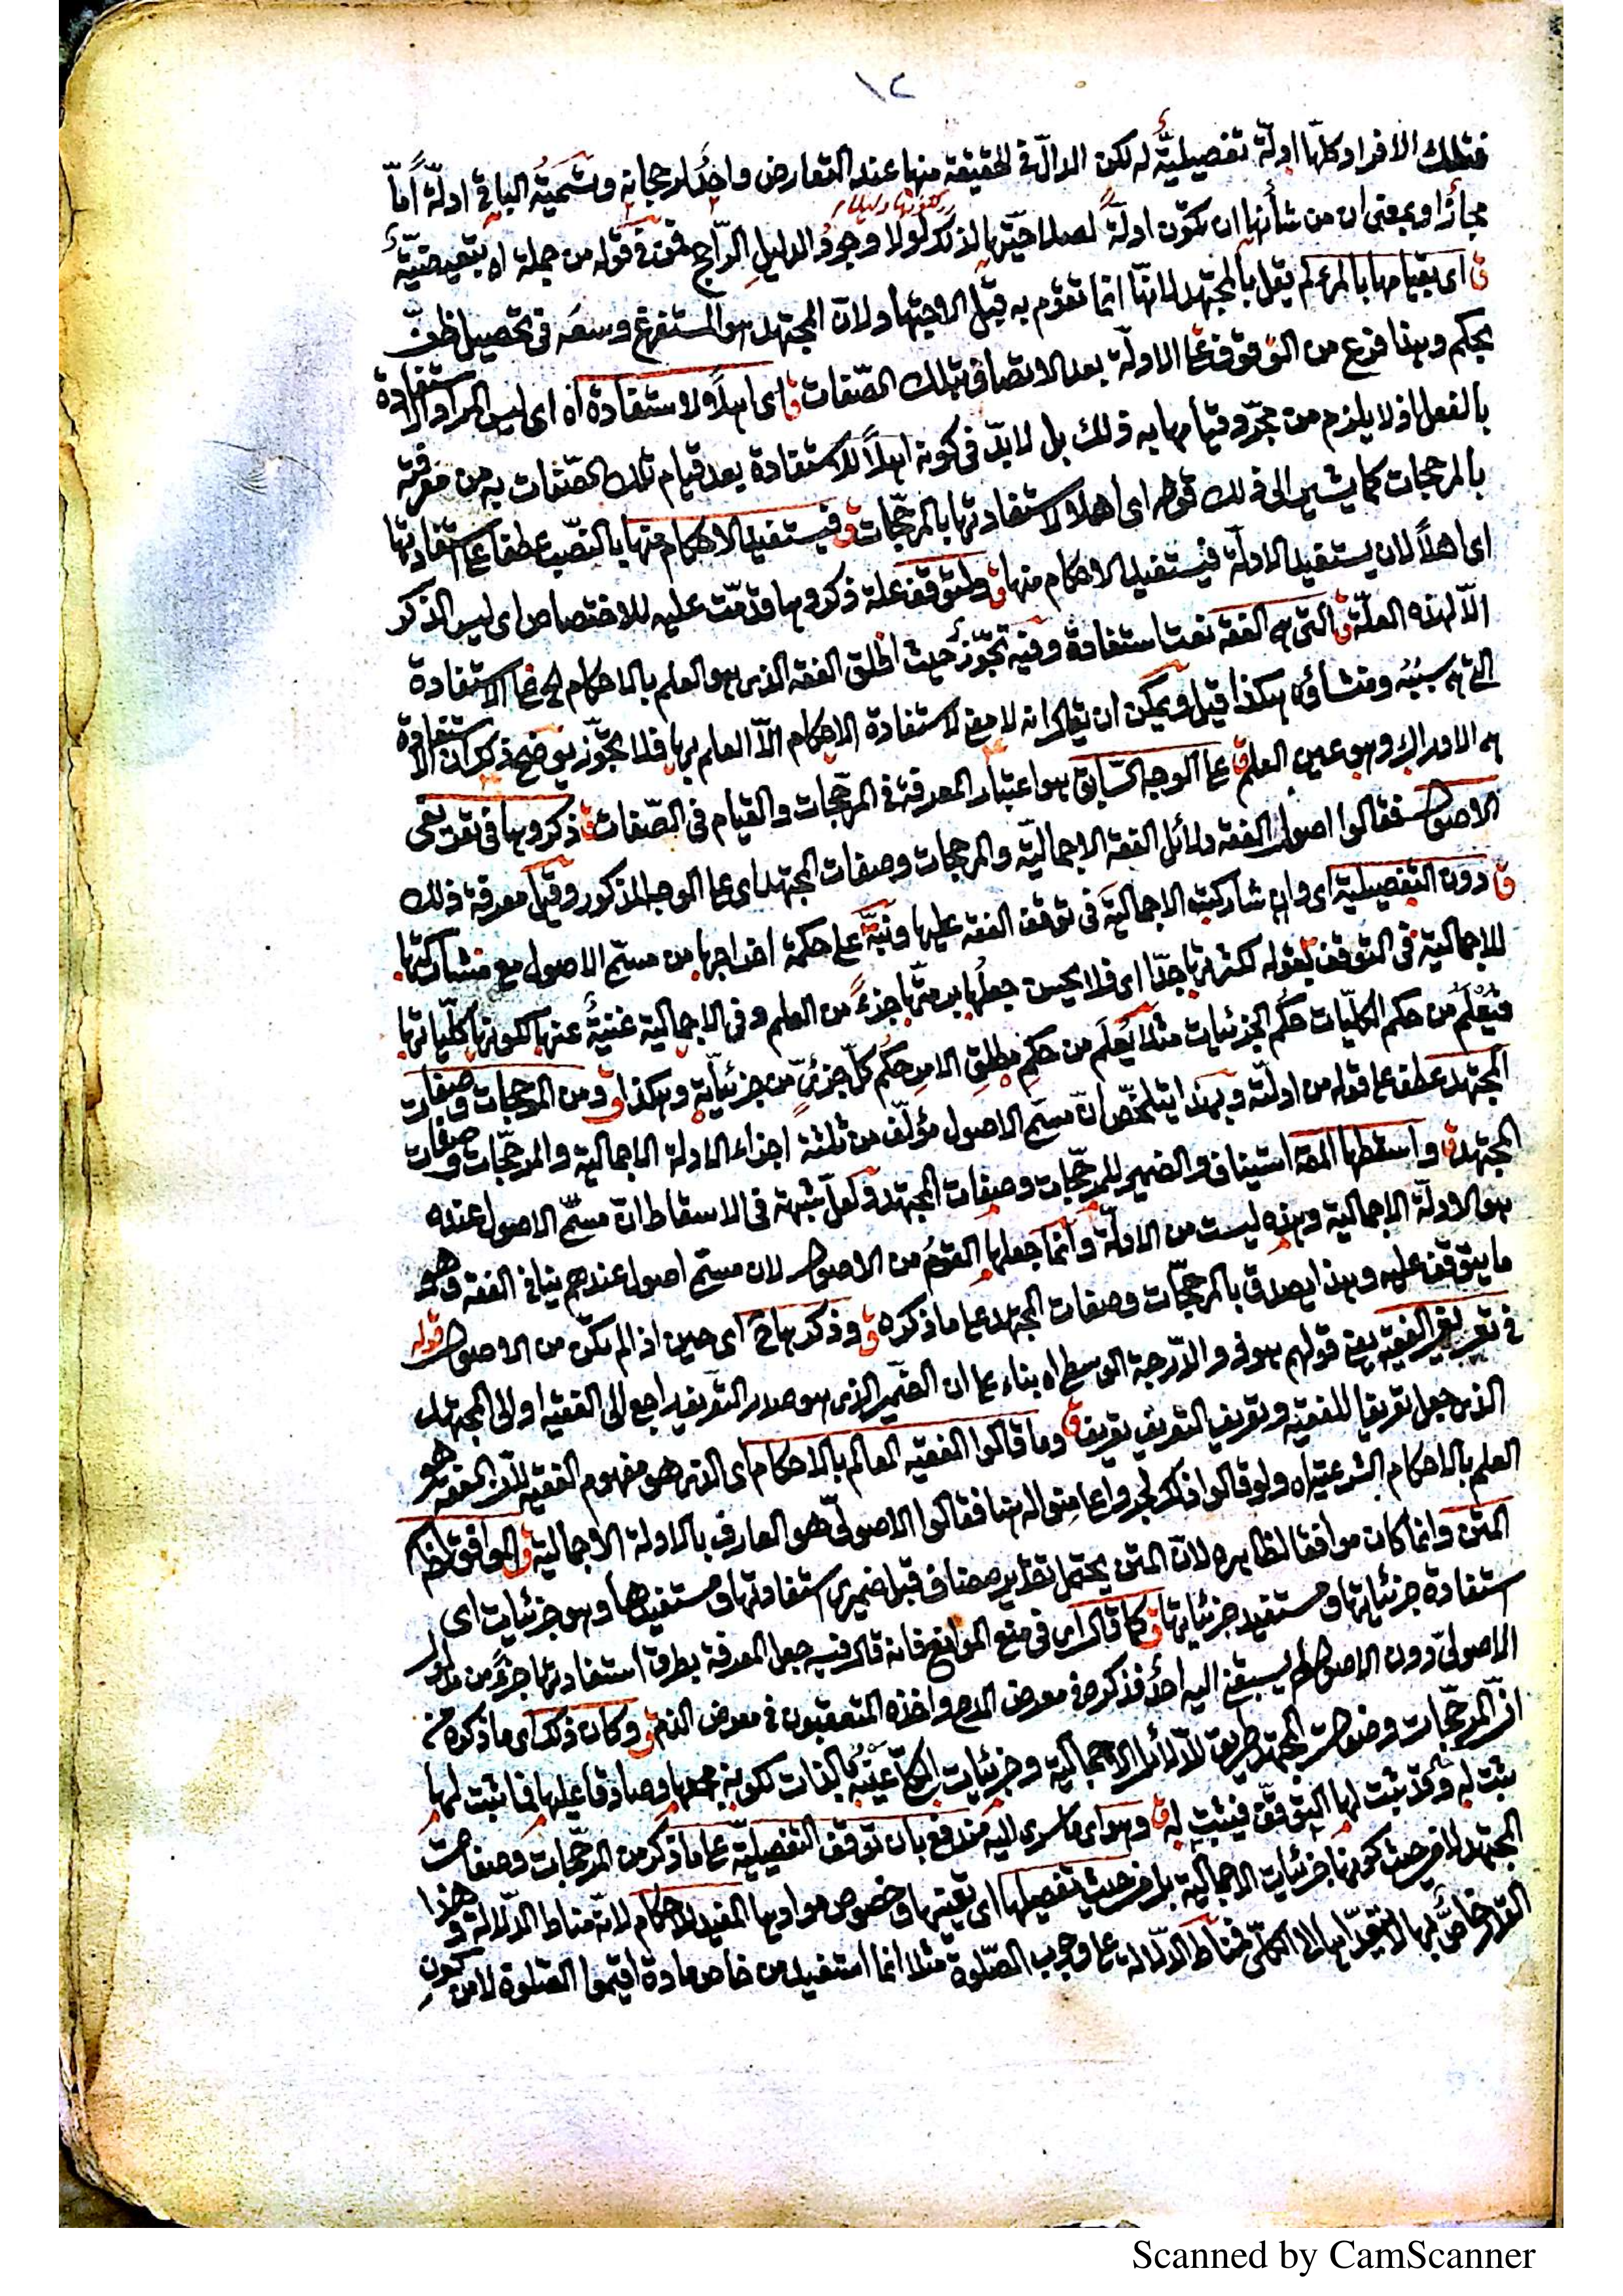 ١٢
فتلك الافراد كلها ادلة تفصيلية له لكن الدال في الحقيقة منها عند التعارض واحد لرجحانه وتسمية الباقي ادلة اما
مجازا او بمعنى ان من شأنها ان تكون ادلة لصلاحيتها لذلك لولا وجود الدليل الراجح فمن في قوله من جملة اه تبعيضية
ق اى بقيامها بالمرء لم يقل بالمجتهد لانها انما تقوم به قبل الاجتهاد ولان المجتهد هو المستفرغ وسعه فى تحصيل ظن
بحكم وهذا فرع من الوقوف على الادلة بعد الاتصاف بتلك الصفات ق اى اهلا للاستفادة اه اى ليس المراد الاستفادة
بالفعل اذ لا يلزم من مجرد قيامها به ذلك بل لا بد فى كونه اهلا للاستفادة بعد قيام تلك الصفات به من معرفته
بالمرجحات كما يشير الى ذلك قوله اى اهلا لاستفادتها بالمرجحات ق فيستفيد الاحكام منها بالنصب عطفا على استفادتها
اى اهلا لان يستفيد الادلة فيستفيد الاحكام منها ق ولتوقف علة ذكروها قدمت عليه للاختصاص اى ليس الذكر
الا لهذه العلة ق التى هى الفقه نعت استفادة وفيه تجوز حيث اطلق الفقه الذى هو العلم بالاحكام الخ على الاستفادة
التى هى سببه ومنشاؤه هكذا قيل ويمكن ان يقال انه لا معنى لاستفادة الاحكام الا العلم بها فلا تجوز يوضح ذكر ان الاستفادة
هى الادراك وهو عين العلم ق على الوجه السابق هو اعتبار المعرفة فى المرجحات والقيام فى الصفات ق ذكروها فى تعريفى
الاصول فقالوا اصول الفقه دلائل الفقه الاجمالية والمرجحات وصفات المجتهد اى على الوجه المذكور وقيل معرفة ذلك
ق دون التفصيلية اى وان شاركته الاجمالية فى توقف الفقه عليها ونبه على حكمة اخراجها من مسمى الاصول مع مشاركتها
للاجمالية فى التوقف بقوله لكثرتها جدا اى فلا يحسن جعلها برمتها جزء من العلم وفى الاجمالية غنية عنها لكونها كلياتها
فيعلم من حكم الكليات حكم الجزئيات مثلا يعلم من حكم مطلق الامر حكم كل جزئى من جزئياته وهكذا ق ومن المرجحات وصفات
المجتهد عطف على قوله من ادلته وبهذا يتلخص ان مسمى الاصول مؤلف من ثلثة اجزاء الادلة الاجمالية والمرجحات وصفات
المجتهد ق واسقطها المص استيناف والضمير للمرجحات وصفات المجتهد ولعل شبهته فى الاسقاط ان مسمى الاصول عنده
هو الادلة الاجمالية وهذه ليست من الادلة وانما جعلها القوم من الاصول لان مسمى اصول عندهم مبانى الفقه وهو
ما يتوقف عليه وهذا يصدق بالمرجحات وصفات المجتهد على ما ذكره ق وذكرها ح اى حين اذ لم تكن من الاصول قوله
فى تعريف الفقيه يعنى قولهم هو ذو الدرجة الوسطى اه بناء على ان الضمير الذى هو صدر التعريف راجع الى الفقيه او الى المجتهد
الذى جعل تعريفا للفقيه وتعريف التعريف تعريف ق وما قالوا الفقيه العالم بالاحكام اى الذى هو مفهوم الفقيه لان الفقه هو
العلم بالاحكام الشرعية اه ولو قالوا ذلك لجروا على منواله هنا فقالوا الاصولى هو العارف بالادلة الاجمالية ق الموافق لظاهر
المتن وانما كان موافقا لظاهره لان المتن يحتمل تقدير مضاف قبل ضميرى استفادتها ومستفيدها وهو جزئيات اى
استفادة جزئياتها ومستفيد جزئياتها ق كما قال اى فى منع الموانع فانه قال فيه جعل المعرفة بطرق استفادتها جزء من مدلول
الاصولى دون الاصول لم يسبقنى اليه احد فذكره فى معرض المدح واخذه المتعقبون فى معرض الذم ق وكان ذلك اى ما ذكره من
ان المرجحات وصفات المجتهد طريق للدلائل الاجمالية وجزئيات الكلى عينه بالذات لكونه محمولا وصادقا عليها فما ثبت لها
يثبت له وقد ثبت لها التوقف فيثبت له ق وهو اى ما سرى اليه مندفع بان توقف التفصيلية على ما ذكر من المرجحات وصفات
المجتهد لا من حيث كونها جزئيات الاجمالية بل من حيث تفصيلها اى تعينها وخصوص موادها المفيد للاحكام لانه مناط الدلالة وهذا
القدر خاص بها لا يتعداها الى الكلى فمناط الدلالة على وجوب الصلوة مثلا انما استفيد من خاص مادة اقيموا الصلوة لا من كون
Scanned by CamScanner